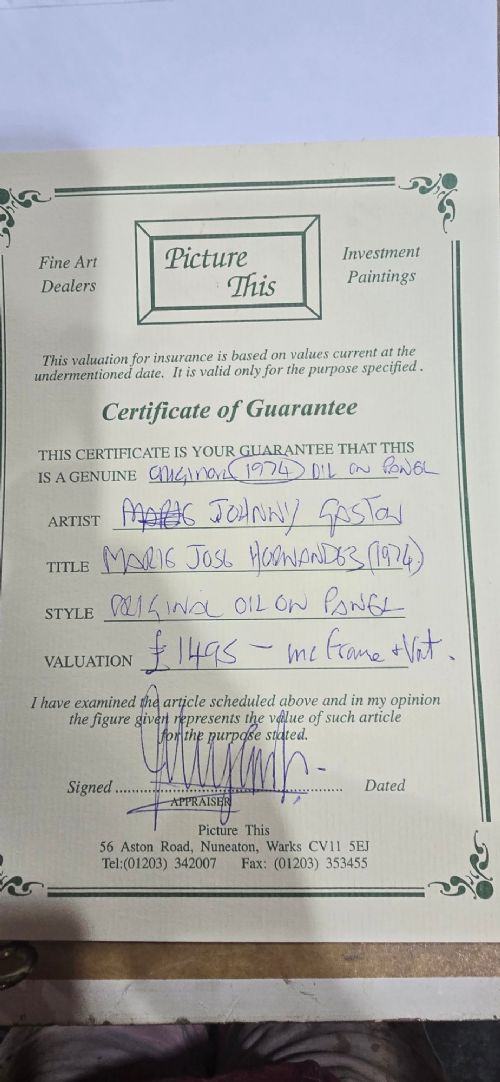 Fine Art
Dealers
Picture
This
Investment
Paintings
This valuation for insurance is based on values current at the
undermentioned date. It is valid only for the purpose specified.
Certificate of Guarantee
THIS CERTIFICATE IS YOUR GUARANTEE THAT THIS
IS A GENUINE ORIGINAL (1974) OIL ON PANEL
ARTIST JOHNNY GASTON
TITLE MARIE JOSE HERNANDEZ (1974)
STYLE ORIGINAL OIL ON PANEL
VALUATION £1495 - inc frame + Vat.
I have examined the article scheduled above and in my opinion
the figure given represents the value of such article
for the purpose stated.
Signed Dated
APPRAISER
Picture This
56 Aston Road, Nuneaton, Warks CV11 5EJ
Tel:(01203) 342007 Fax: (01203) 353455